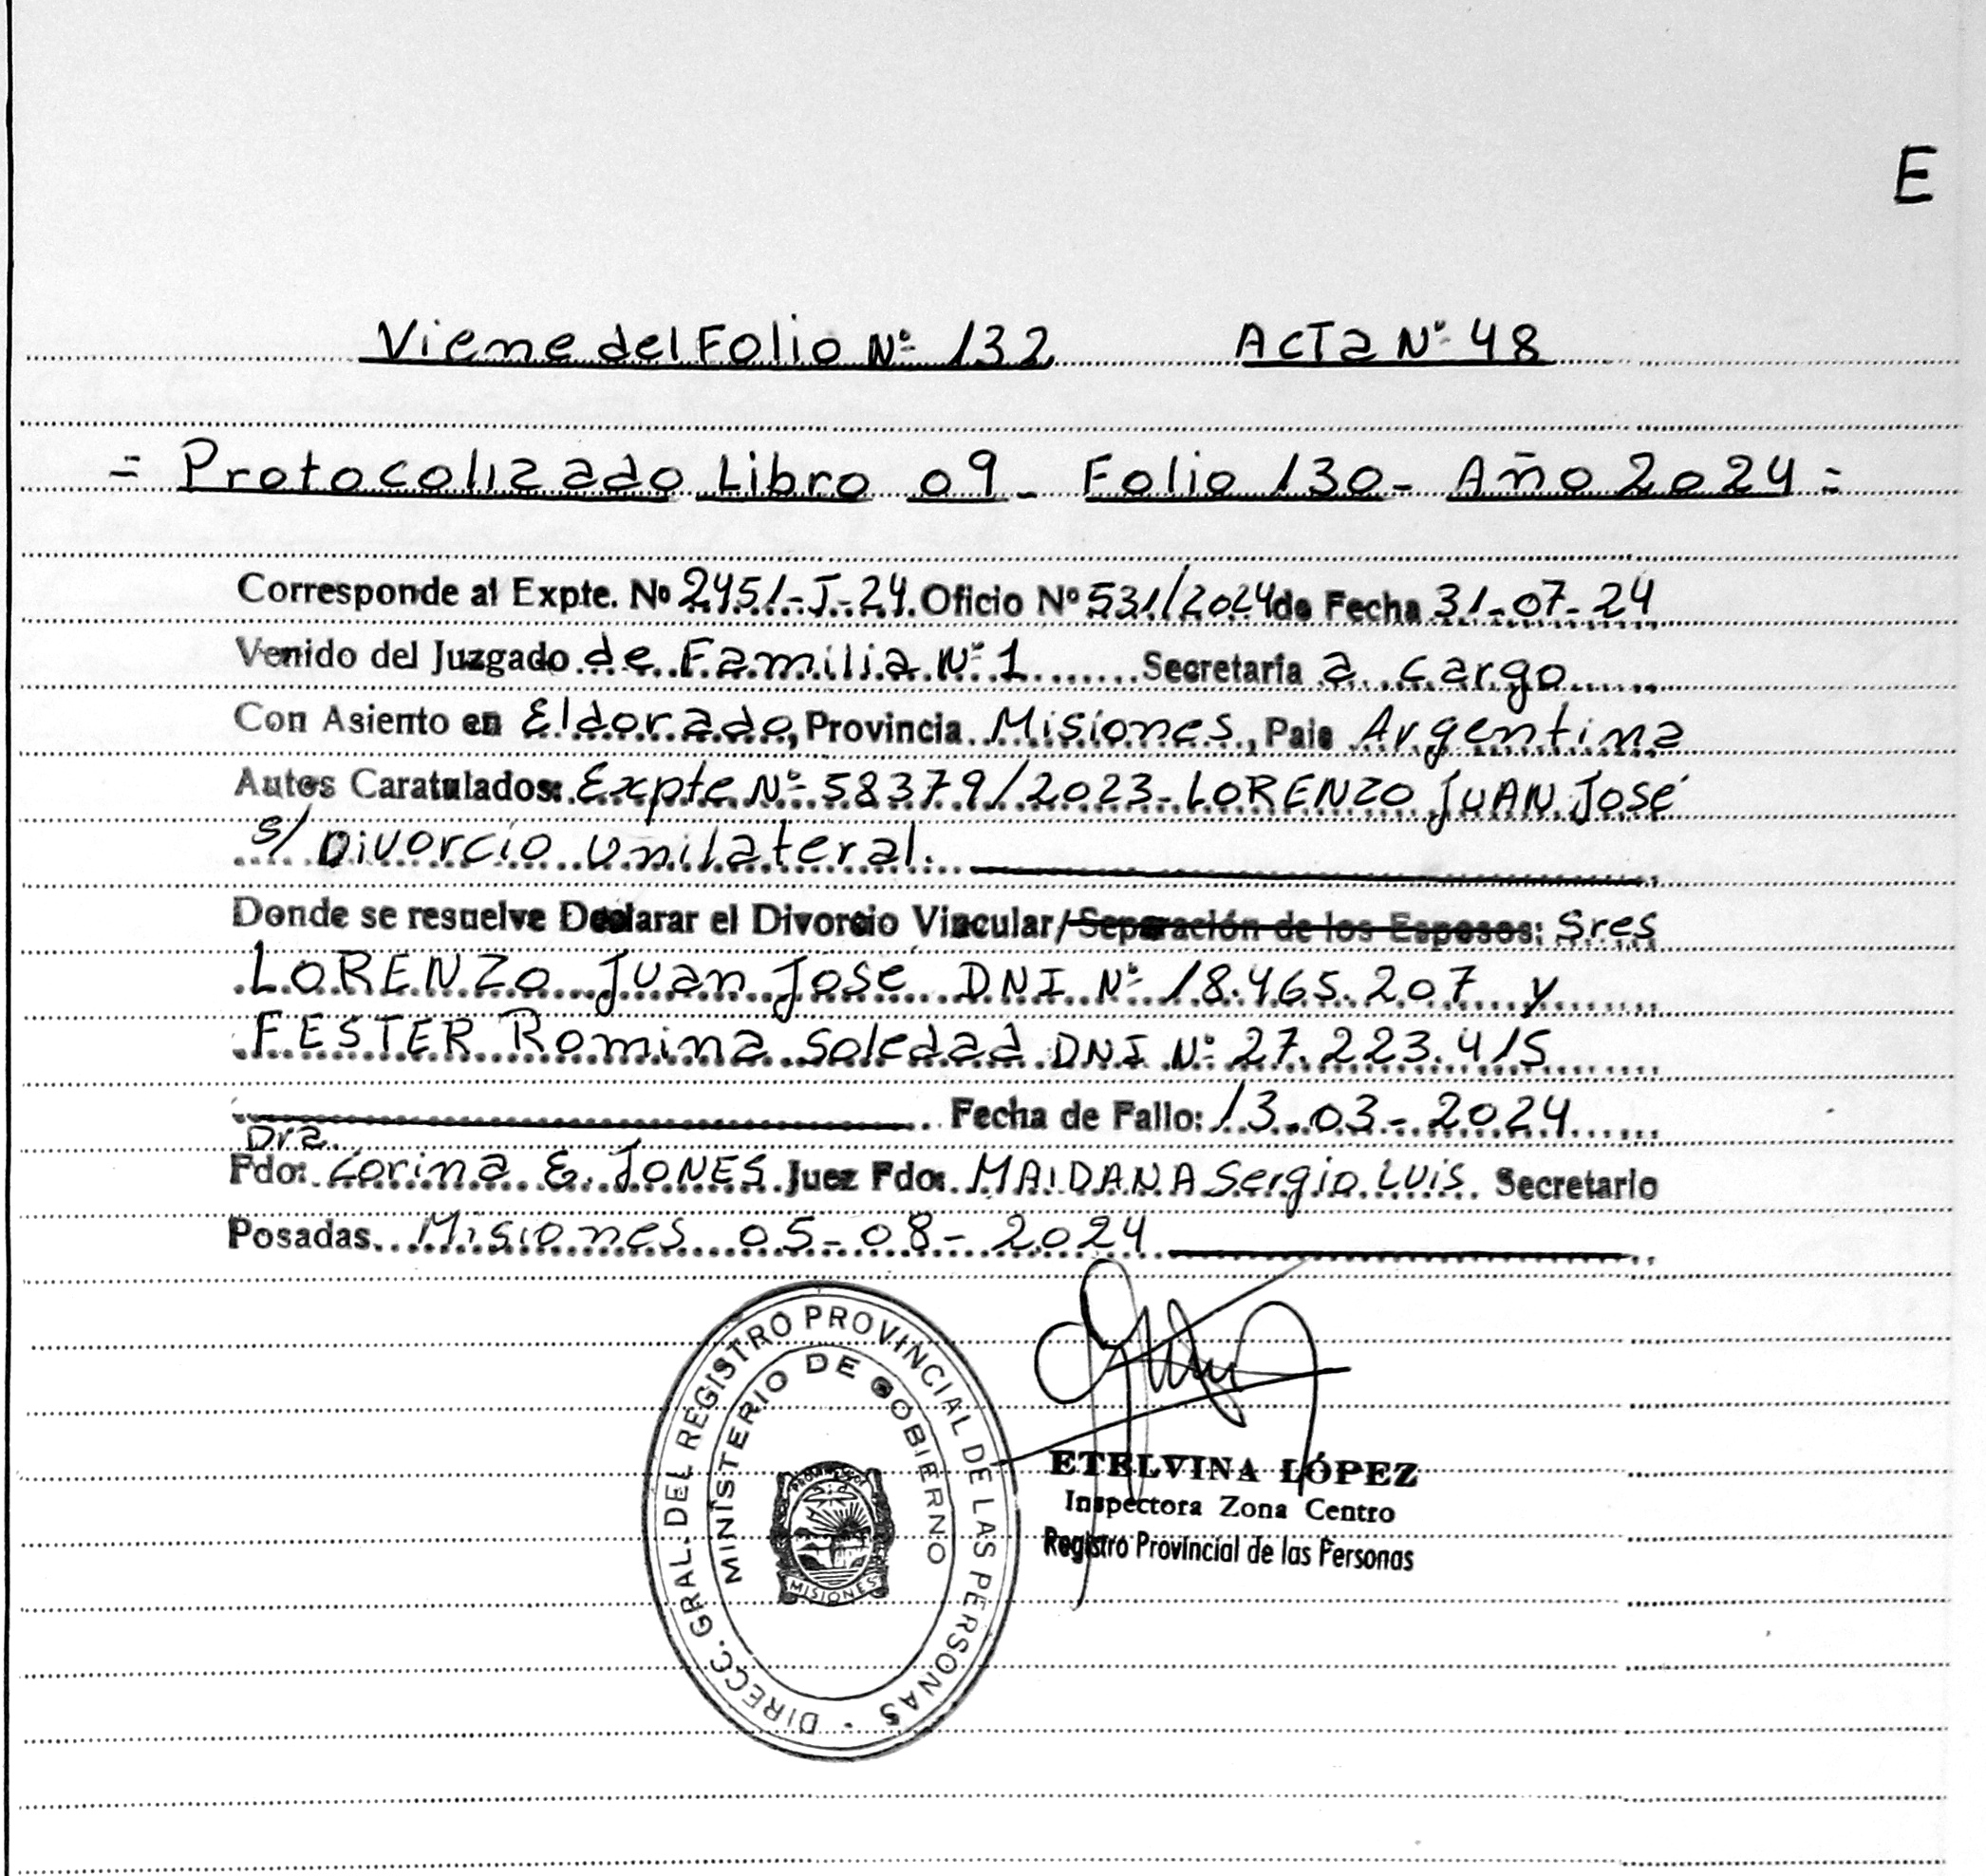 E
Viene del Folio Nº 132 Acta Nº 48
= Protocolizado Libro 09 - Folio 130 - Año 2024 =
Corresponde al Expte. Nº 2451-J-24. Oficio Nº 531/2024 de Fecha 31-07-24
Venido del Juzgado de Familia Nº 1 Secretaría a cargo
Con Asiento en Eldorado, Provincia Misiones, Pais Argentina
Autos Caratulados: Expte Nº 58379/2023-LORENZO JUAN José
s/ Divorcio Unilateral.
Donde se resuelve Declarar el Divorcio Vincular/Separación de los Esposos: Sres
LORENZO Juan José DNI Nº 18.465.207 y
FESTER Romina Soledad DNI Nº 27.223.415
Fecha de Fallo: 13-03-2024
Dra.
Fdo: Corina E. JONES Juez Fdo: MAIDANA Sergio Luis. Secretario
Posadas Misiones 05-08-2024
DIRECC. GRAL. DEL REGISTRO PROVINCIAL DE LAS PERSONAS
MINISTERIO DE GOBIERNO
MISIONES
ETELVINA LÓPEZ
Inspectora Zona Centro
Registro Provincial de las Personas